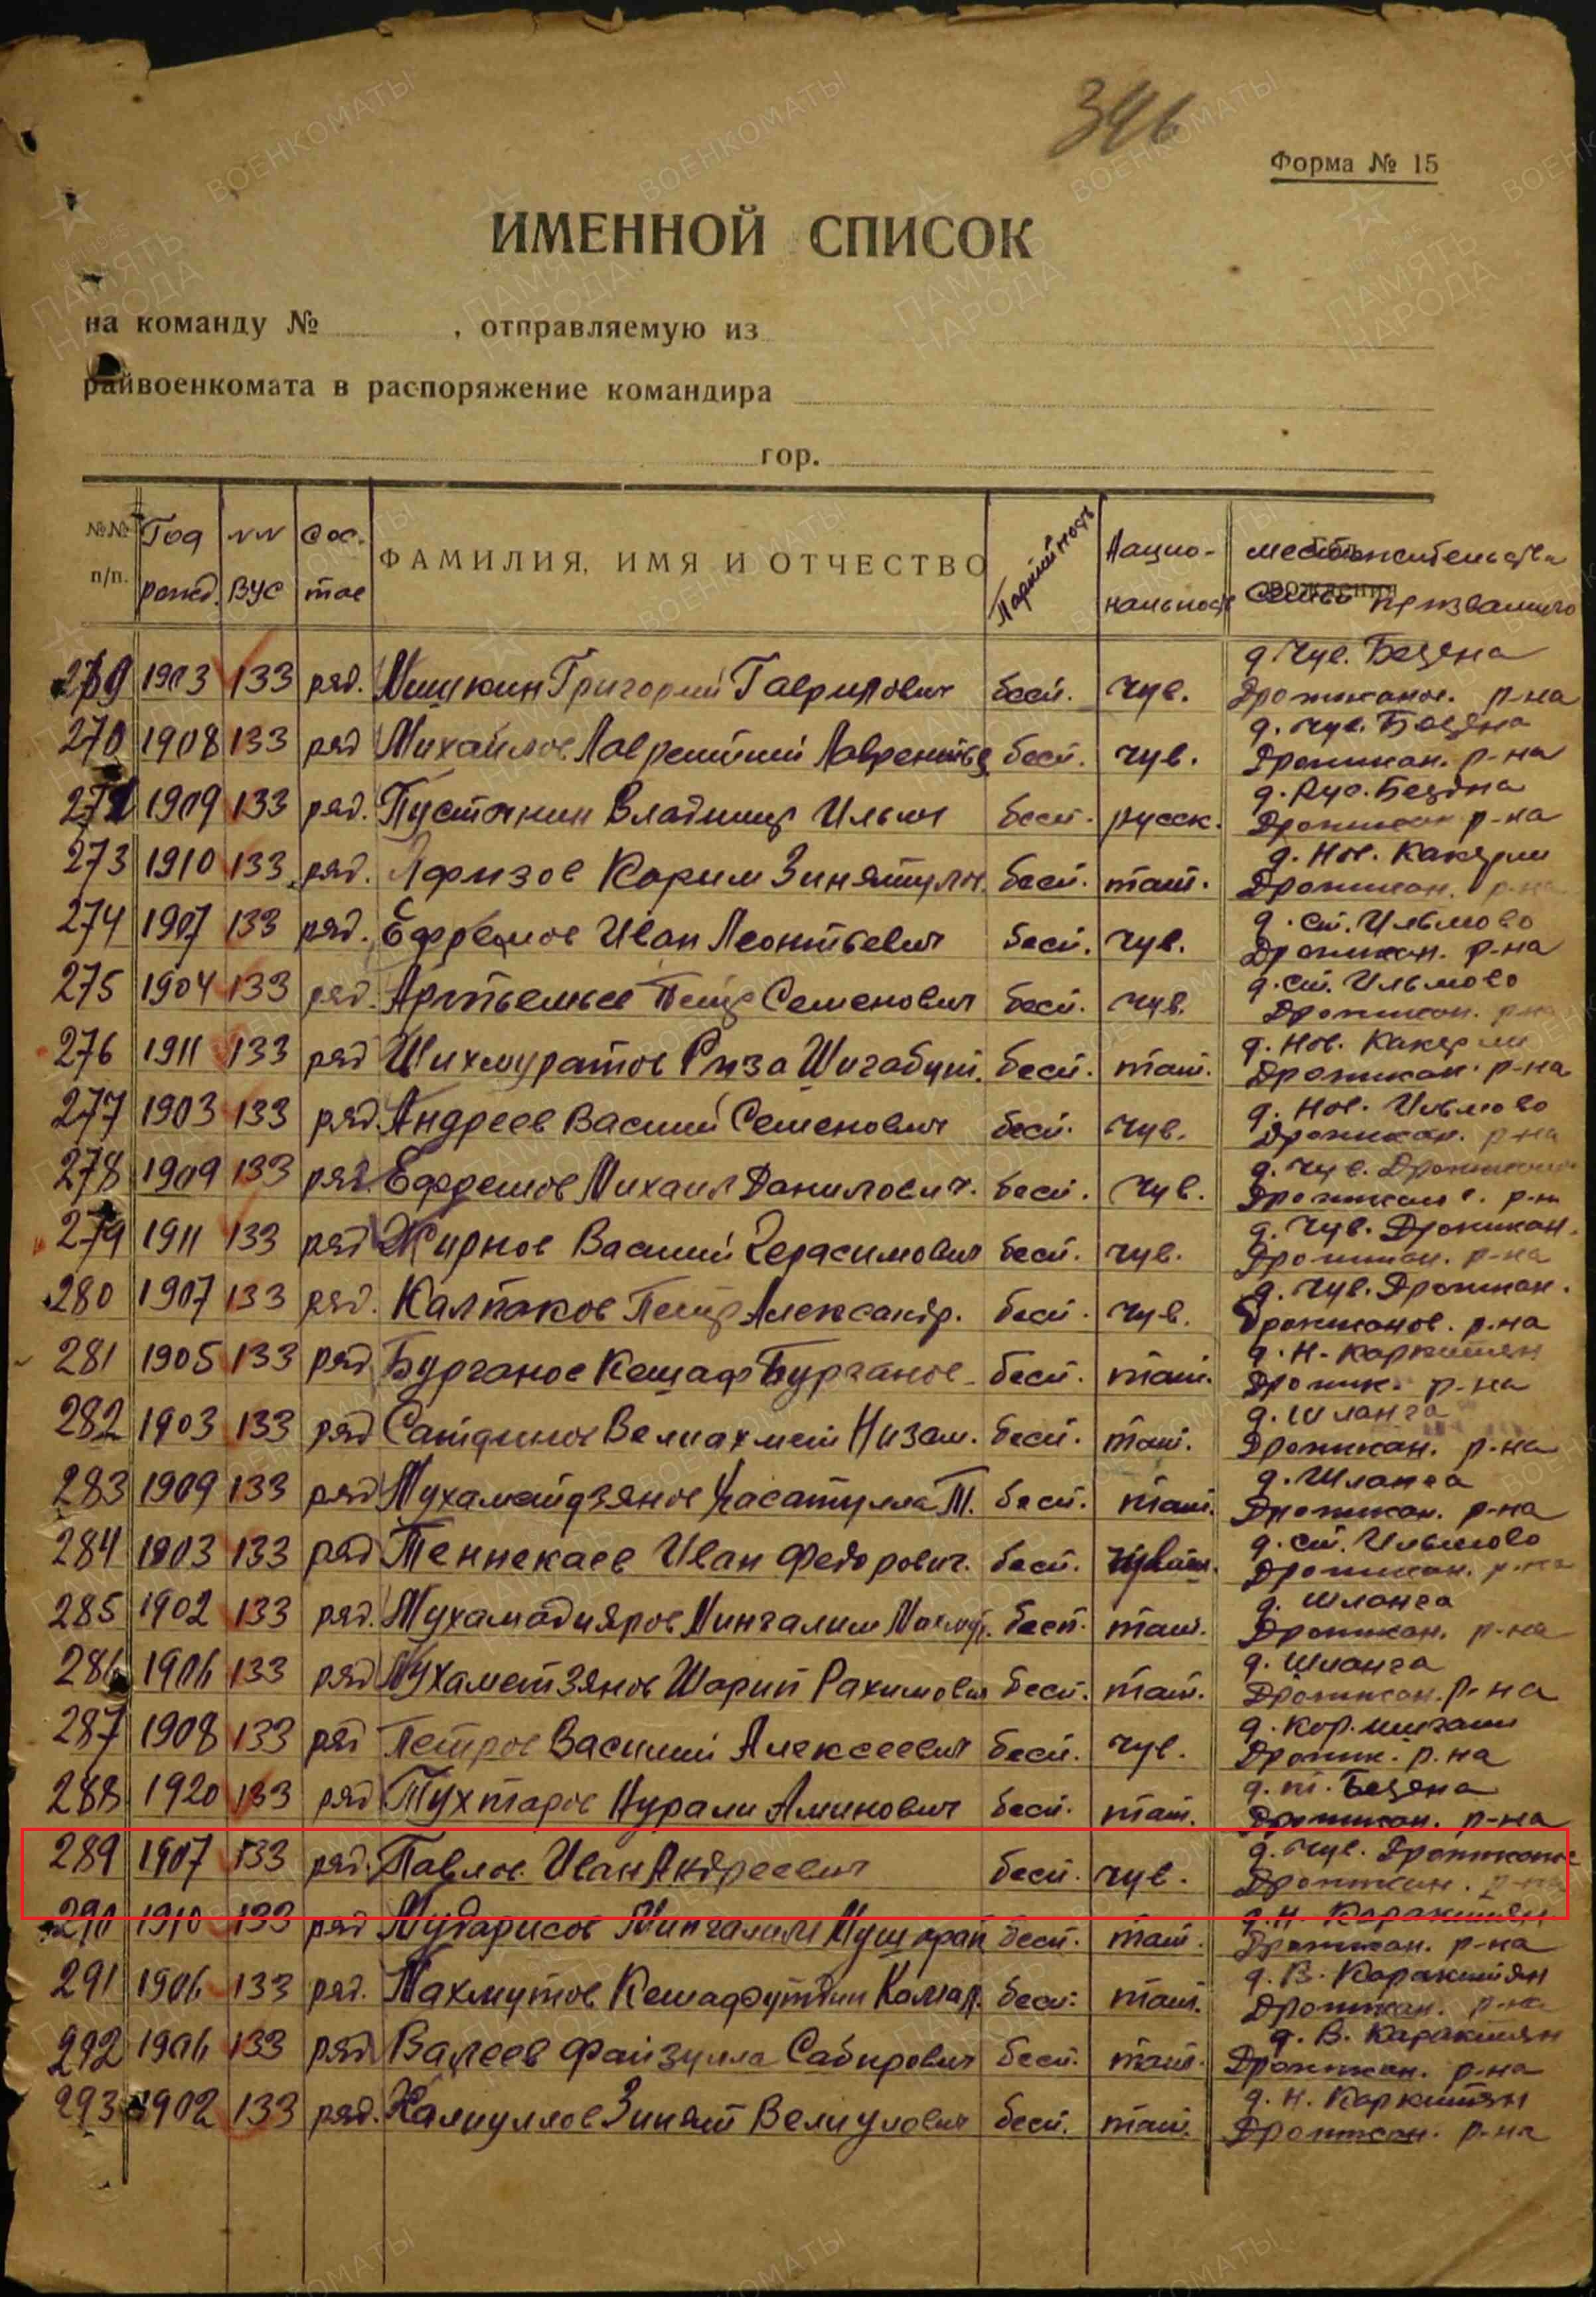 346
Форма № 15
ИМЕННОЙ СПИСОК
на команду № , отправляемую из
райвоенкомата в распоряжение командира
гор.
№№ п/п. Год рожд. №№ ВУС Сос- тав ФАМИЛИЯ, ИМЯ И ОТЧЕСТВО Партийность Нацио- нальность местожительства семьи призванного
269 1903 133 ряд. Мишкин Григорий Гаврилович бесп. чув. д. Чув. Бездна Дрожжанов. р-на
270 1908 133 ряд Михайлов Лаврентий Лаврентьев бесп. чув. д. Чув. Бездна Дрожжан. р-на
272 1909 133 ряд. Пусточкин Владимир Ильич бесп. русск. д. Рус. Бездна Дрожжан р-на
273 1910 133 ряд. Афизов Карим Зинятул. бесп. тат. д. Нов. Какерли Дрожжан. р-на
274 1907 133 ряд. Ефремов Иван Леонтьевич бесп. чув. д. Ст. Ильмово Дрожжан. р-на
275 1904 133 ряд. Артемьев Петр Семенович бесп. чув. д. Ст. Ильмово Дрожжан. р-на
276 1911 133 ряд Шихмуратов Риза Шигабут. бесп. тат. д. Нов. Какерли Дрожжан. р-на
277 1903 133 ряд. Андреев Василий Семенович бесп. чув. д. Нов. Ильмово Дрожжан. р-на
278 1909 133 ряд. Ефремов Михаил Данилович. бесп. чув. д. Чув. Дрожжаное Дрожжанов. р-н
279 1911 133 ряд Жирнов Василий Герасимович бесп. чув. д. Чув. Дрожжан. Дрожжан. р-на
280 1907 133 ряд. Калпаков Петр Александр. бесп. чув. д. Чув. Дрожжан. Дрожжанов. р-на
281 1905 133 ряд Бурганов Кешаф Бурганов. бесп. тат. д. Н. Каркитян Дрожж. р-на
282 1903 133 ряд Сатдинов Велиахмет Низам. бесп. тат. д. Шланга Дрожжан. р-на
283 1909 133 ряд Мухаметдзянов Хасатулла М. бесп. тат. д. Шланга Дрожжан. р-на
284 1903 133 ряд Теннекаев Иван Федорович. бесп. д. Ст. Ильмово Дрожжан. р-на
285 1902 133 ряд. Мухамадияров Мингалим Махмут. бесп. тат. д. Шланга Дрожжан. р-на
286 1906 133 ряд Мухаметзянов Шарип Рахимович бесп. тат. д. Шланга Дрожжан. р-на
287 1908 133 ряд Петров Василий Алексеевич бесп. чув. д. Кор. Шигали Дрожж. р-на
288 1920 133 ряд Тухтаров Нурали Аминович бесп. тат. д. т. Бездна Дрожжан. р-на
289 1907 133 ряд. Павлов Иван Андреевич бесп. чув. д. Чув. Дрожжаное Дрожжан. р-на
290 1910 133 ряд Мударисов Мингалим бесп. тат. д. Н. Каракитян Дрожжан. р-на
291 1906 133 ряд. Махмутов Кешафутдин Камал. бесп. тат. д. В. Каракитян Дрожжан. р-на
292 1906 133 ряд Валеев Файзулла Сабирович бесп. тат. д. В. Каракитян Дрожжан. р-на
293 1902 133 ряд. Халиуллов Зинят Велиулович бесп. тат. д. Н. Каркитян Дрожжан. р-на